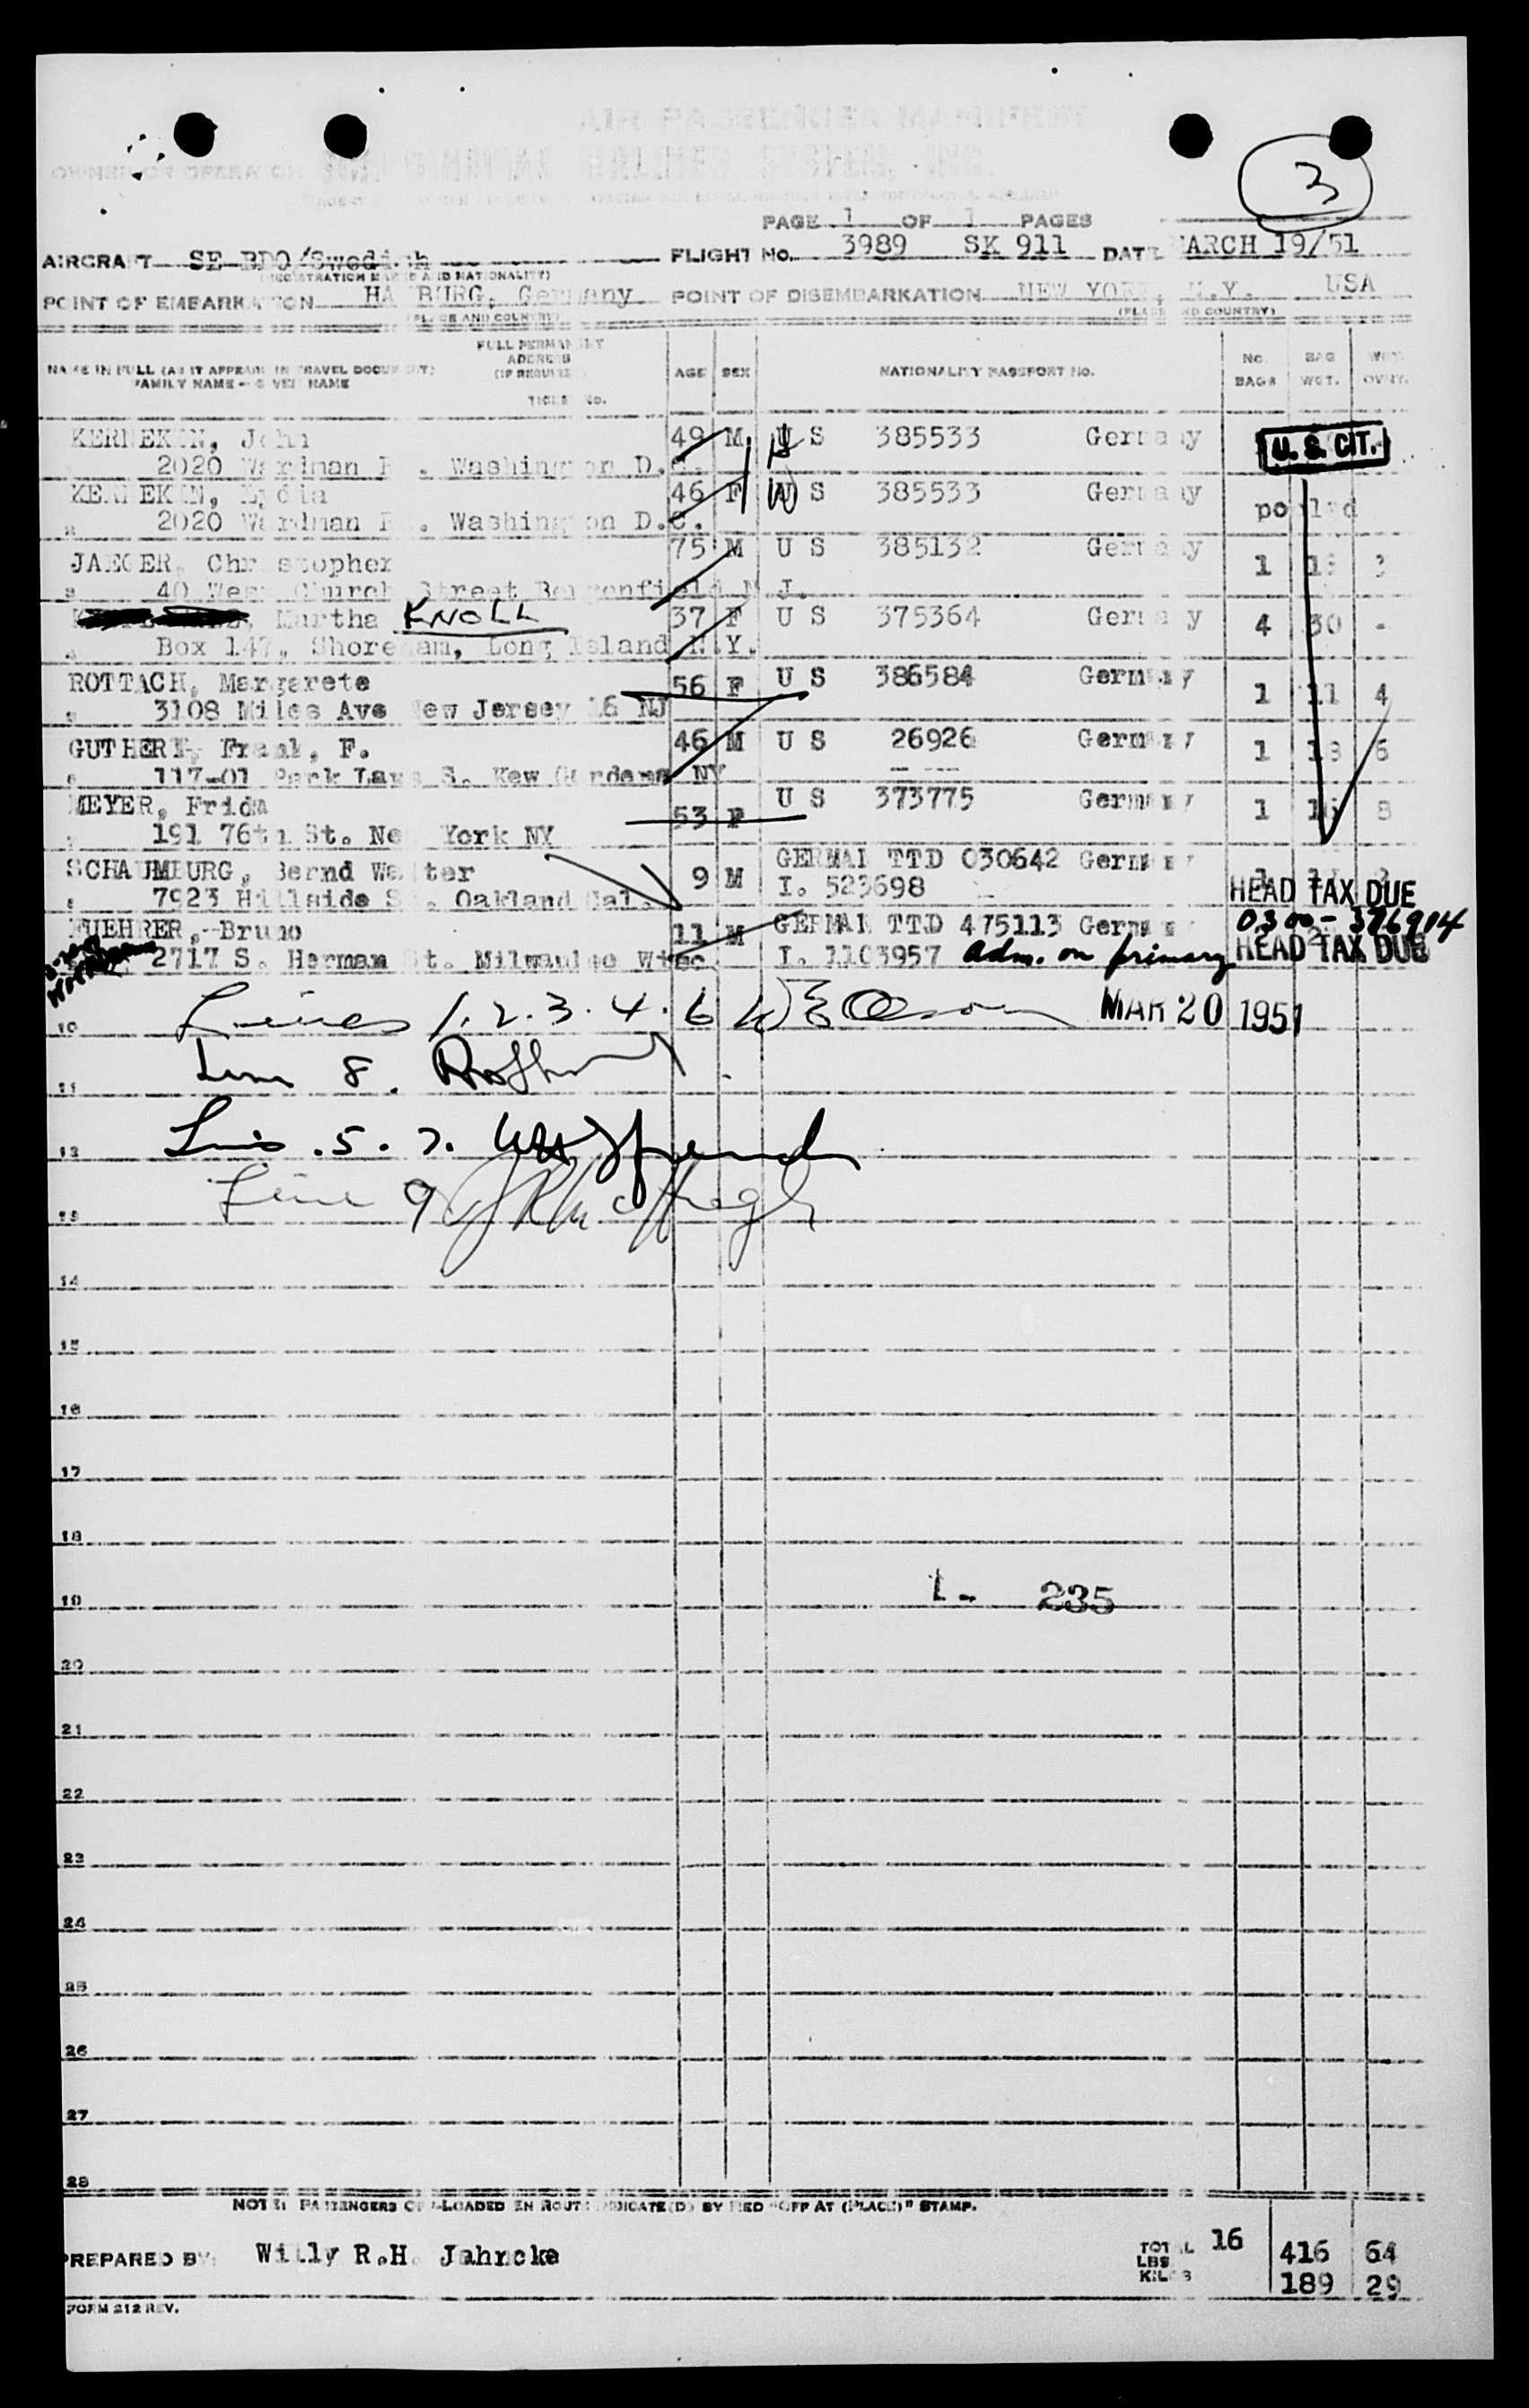 AIR PASSENGER MANIFEST
OWNER OR OPERATOR
3
PAGE 1 OF 1 PAGES
AIRCRAFT SE-BDO/Swedish FLIGHT No. 3989 SK 911 DATE MARCH 19/51
(REGISTRATION MARKS AND NATIONALITY)
POINT OF EMBARKATION HAMBURG, Germany POINT OF DISEMBARKATION NEW YORK, N.Y. USA
(PLACE AND COUNTRY) (PLACE AND COUNTRY)
NAME IN FULL (AS IT APPEARS IN TRAVEL DOCUMENT)
FAMILY NAME - GIVEN NAME
FULL PERMANENT
ADDRESS
(IF REQUIRED)
TICKET No.
AGE SEX NATIONALITY PASSPORT No. No. BAGS BAG WGT. WGT. OVWT.
John 49 M U S 385533 Germany U. S. CIT.
2020 Wardman Washington D.C.
46 F U S 385533 Germany pooled
2020 Wardman Washington D.C.
JAEGER, Christopher 75 M U S 385132 Germany 1
40 West Church Street Bergenfield N.J.
Martha KNOLL 37 F U S 375364 Germany 4 30 -
Box 147, Shoreham, Long Island N.Y.
ROTTACH, Margarete 56 F U S 386584 Germany 1 11 4
3108 Miles Ave New Jersey 16 NJ
GUTHERT, Frank, F. 46 M U S 26926 Germany 1 18 6
117-01 Park Lane S. Kew Gardens NY
MEYER, Frida 53 F U S 373775 Germany 1 16 8
191 76th St. New York NY
SCHAUMBURG, Bernd Walter 9 M GERMAN TTD 030642 Germany
7923 Hillside St. Oakland Cal. I. 523698 HEAD TAX DUE
FUEHRER, Bruno 11 M GERMAN TTD 475113 Germany 0300-376914
2717 S. Herman St. Milwaukee Wisc. I. 1103957 adm. on primary HEAD TAX DUE
10 Lines 1. 2. 3. 4. 6 MAR 20 1951
11 Line 8.
Lines 5. 7.
Line 9
14
15
16
17
18
19 L- 235
20
21
22
23
24
25
26
27
28
NOTE: PASSENGERS OFF-LOADED EN ROUTE INDICATE(D) BY RED "OFF AT (PLACE)" STAMP.
PREPARED BY: Willy R.H. Jahncke TOTAL 16
LBS 416 64
KILOS 189 29
FORM 212 REV.